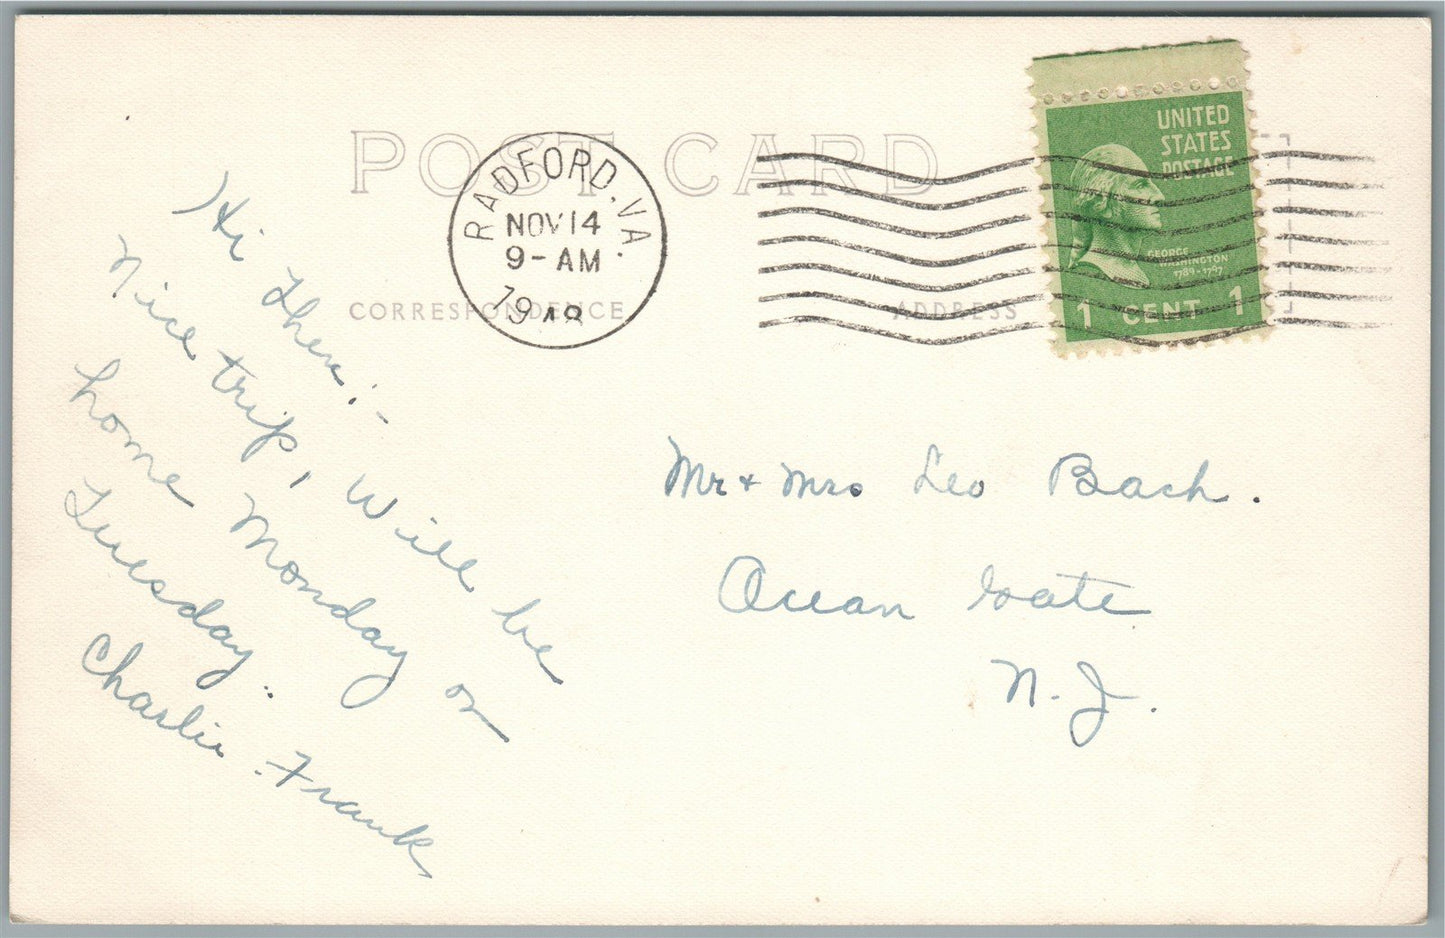 POST CARD
CORRESPONDENCE
ADDRESS
RADFORD, VA.
NOV 14
9-AM
1948
UNITED
STATES
POSTAGE
GEORGE
WASHINGTON
1789-1797
1 CENT 1
Hi there:-
Nice trip, Will be
home Monday or
Tuesday.
Charlie - Frank
Mr + Mrs Leo Bach.
Ocean Gate
N. J.